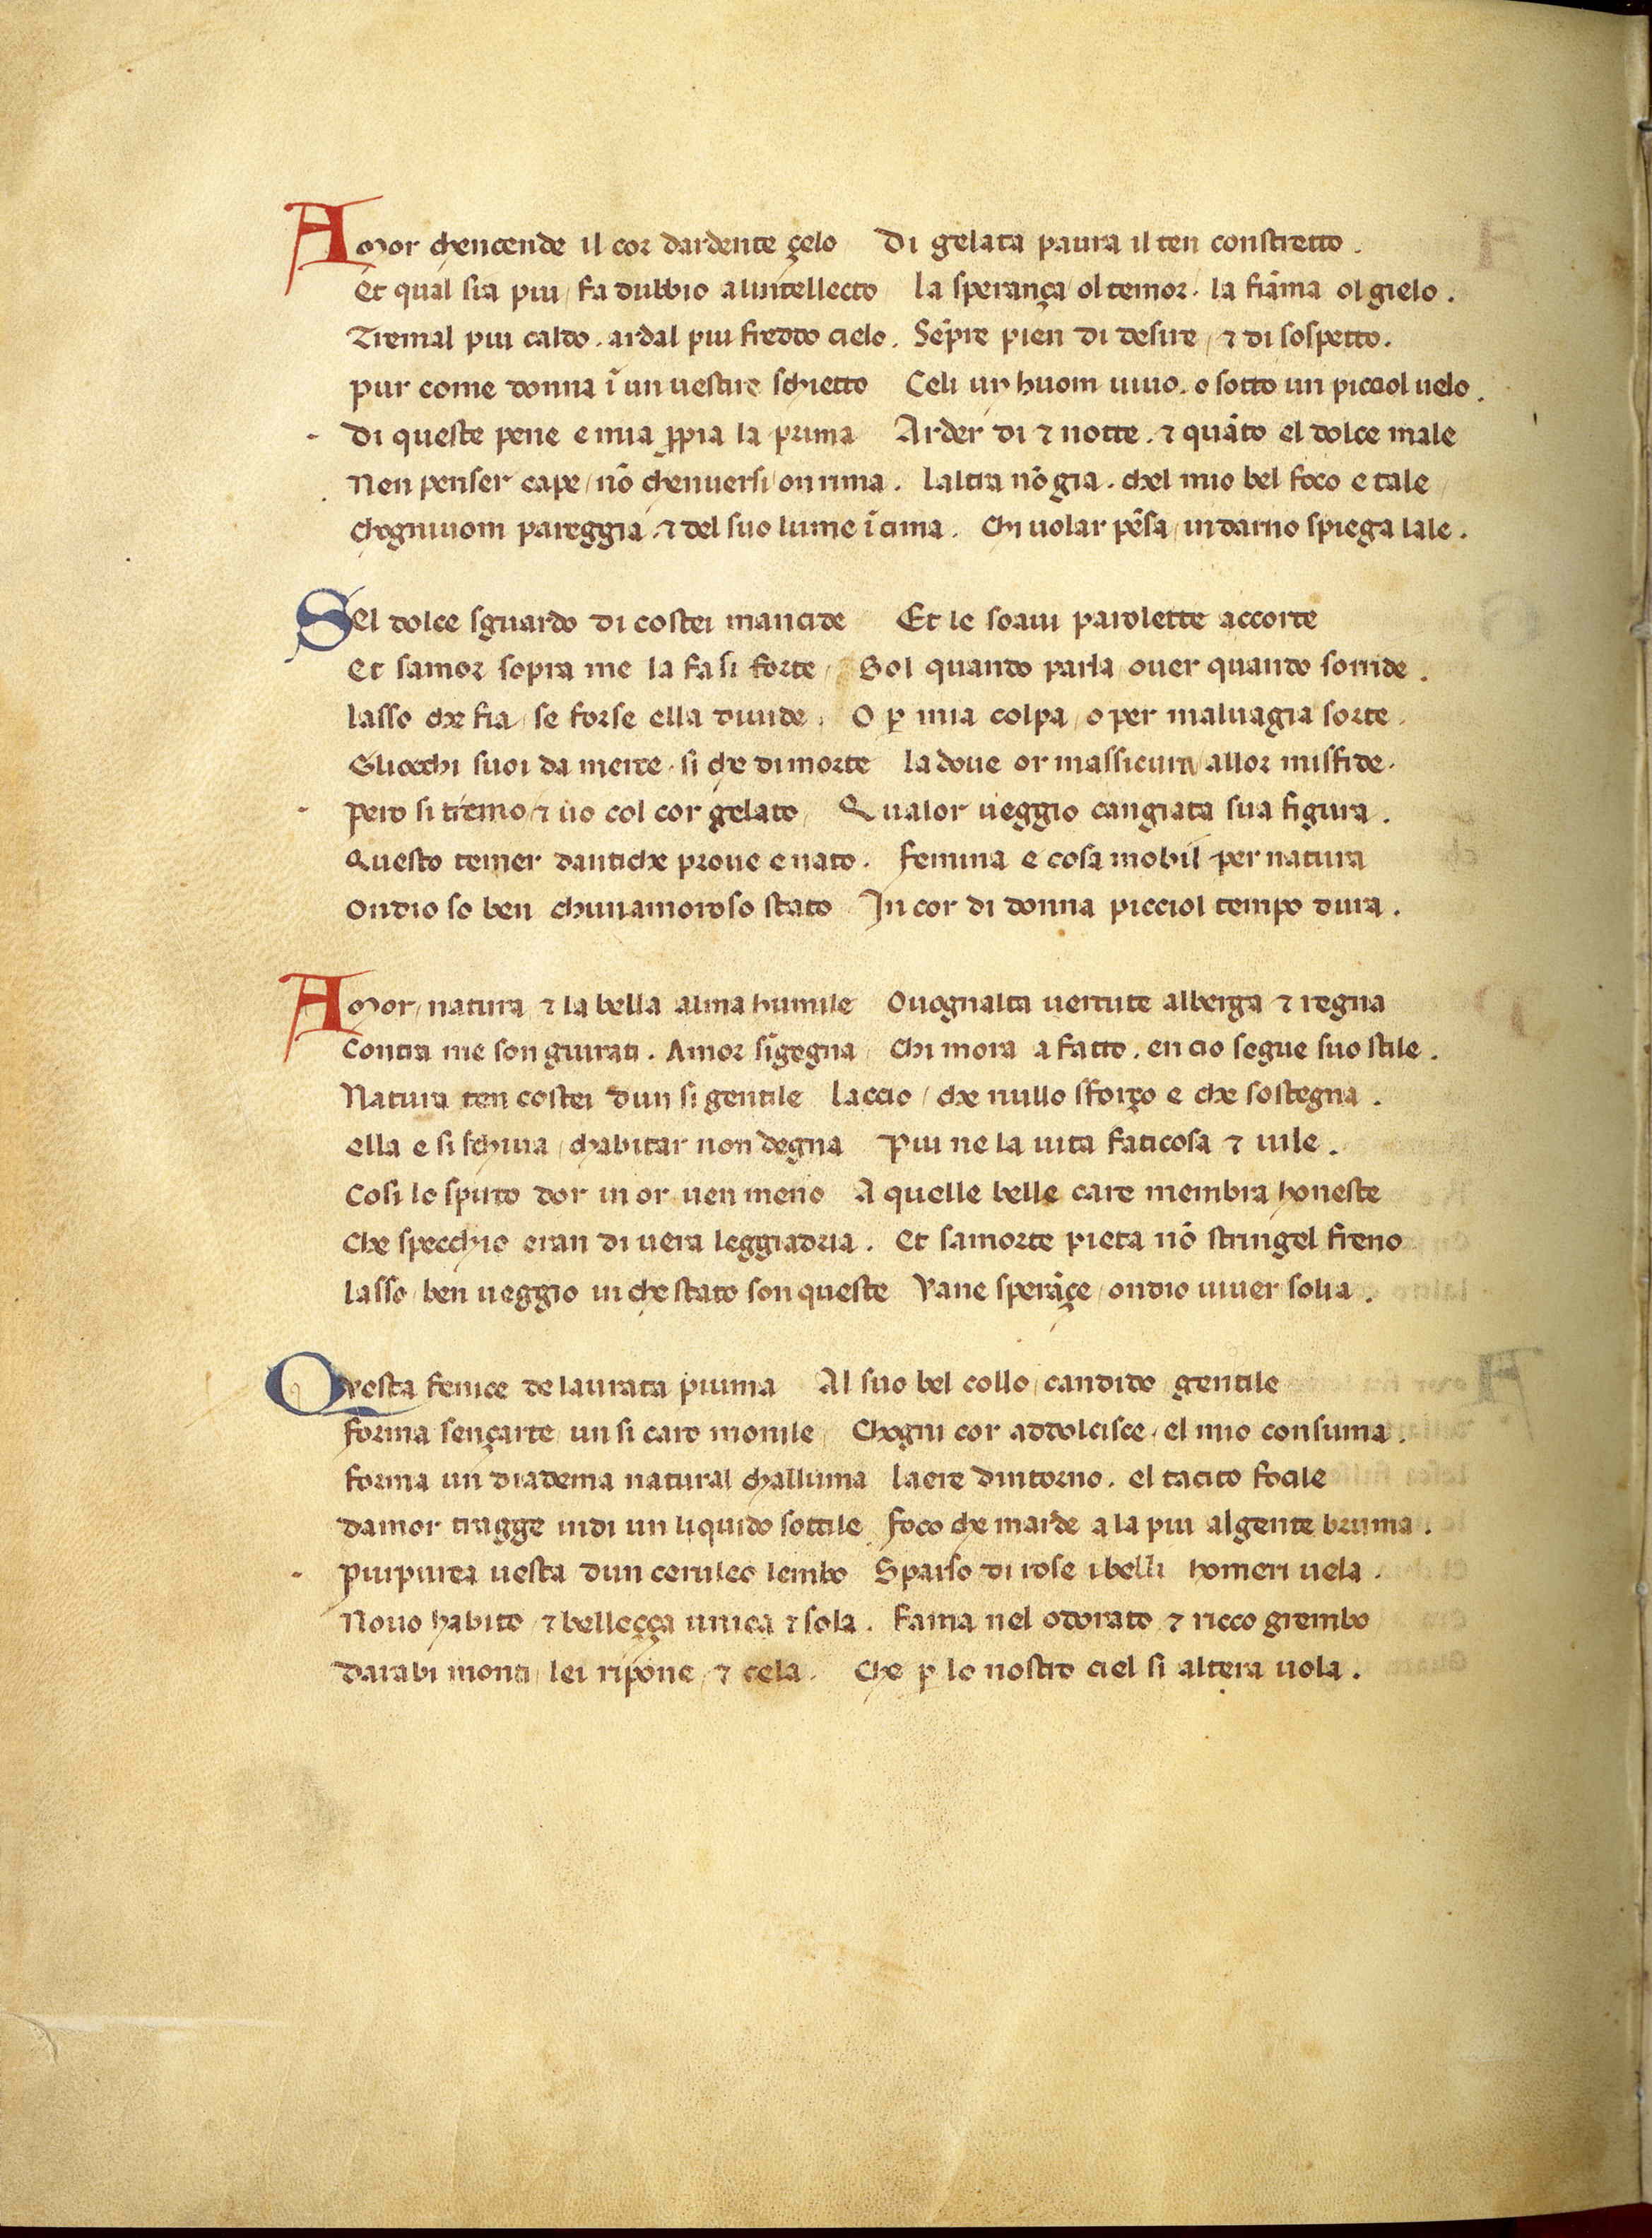 Amor chencende il cor dardente çelo Di gelata paura il ten constretto.
Et qual sia piu / fa dubbio alintellecto La sperança / ol temor. la fiãma ol gielo.
Tremal piu caldo. ardal piu freddo cielo. Sẽpre pien di desire / ⁊ di sospetto.
Pur come donna ĩ un uestire schietto Celi un huom uiuo. o sotto un picciol uelo.
Di queste pene e mia ꝓpia la prima Arder di ⁊ notte. ⁊ quãto el dolce male
Nen penser cape / nõ chenuersi / on rima. Laltra nõ gia. chel mio bel foco e tale /
Chogniuom pareggia. ⁊ del suo lume ĩ cima. Chi uolar pẽsa / indarno spiega lale.
Sel dolce sguardo di costei mancide Et le soaui parolette accorte
Et samor sopra me la fa si forte / Sol quando parla / ouer quando sorride.
Lasso che fia / se forse ella diuide. O ꝑ mia colpa / o per maluagia sorte.
Gliocchi suoi da merce. si che di morte La doue or massicura / allor misfide.
Pero si tremo / ⁊ uo col cor gelato / Qualor ueggio cangiata sua figura.
Questo temer dantiche proue e nato. Femina e cosa mobil per natura
Ondio so ben chunamoroso stato In cor di donna picciol tempo dura.
Amor / natura ⁊ la bella alma humile Ouognalta uertute alberga ⁊ regna
Contra me son giurati. Amor sĩgegna / Chi mora a fatto. en cio segue suo stile.
Natura ten costei dun si gentile Laccio / che nullo sforço e che sostegna.
Ella e si schiua / chabitar non degna Piu ne la uita faticosa ⁊ uile.
Cosi lo spirto dor in or uen meno A quelle belle care membra honeste
Che specchio eran di uera leggiadria. Et samorte pieta nõ stringel freno
Lasso / ben ueggio in che stato son queste Vane sperãçe / ondio uiuer solia.
Questa fenice de laurata piuma Al suo bel collo / candido / gentile
Forma sençarte un si caro monile / Chogni cor addolcisce. el mio consuma.
Forma un diadema natural challuma Laere dintorno. el tacito focile
Damor tragge indi un liquido sottile Foco che marde a la piu algente bruma.
Purpurea uesta dun ceruleo lembo Sparso di rose i belli homeri uela.
Nouo habito / ⁊ belleçça unica ⁊ sola. Fama nel odorato ⁊ ricco grembo
Darabi monti / lei ripone / ⁊ cela. Che ꝑ lo nostro ciel si altera uola.